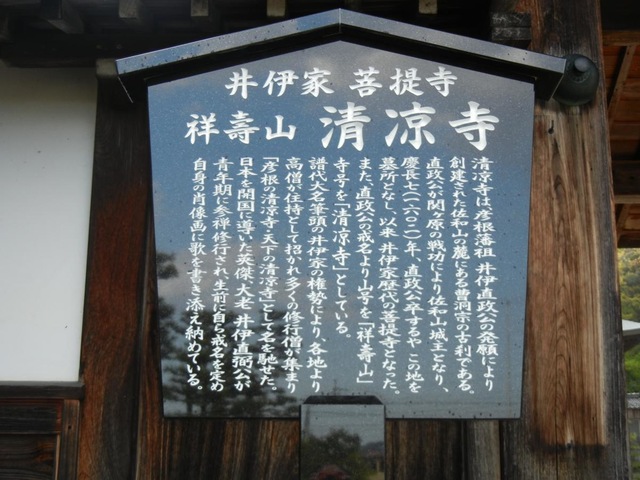 井伊家 菩提寺
祥壽山 清凉寺
清凉寺は、彦根藩祖 井伊直政公の発願により
創建された佐和山の麓にある曹洞宗の古刹である。
直政公が関ヶ原の戦功により佐和山城主となり、
慶長七(一六〇二)年、直政公卒するや この地を
墓所となし、以来 井伊家歴代の菩提寺となった。
また、直政公の戒名より山号を「祥壽山」
寺号を「清凉寺」としている。
譜代大名筆頭の井伊家の権勢により、各地より
高僧が住持として招かれ多くの修行僧が集まり
「彦根の清凉寺・天下の清凉寺」として名を馳せた。
日本を開国に導いた英傑 大老 井伊直弼公が
青年期に参禅修行され、生前に自ら戒名を定め
自身の肖像画に歌を書き添え納めている。